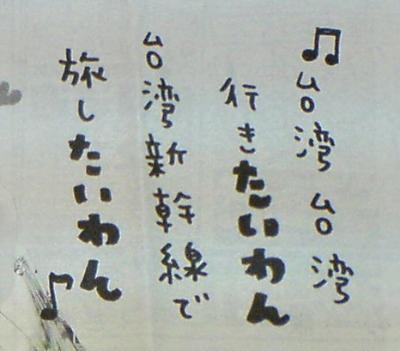 ♫台湾台湾
行きたいわん
台湾新幹線で
旅したいわん♪